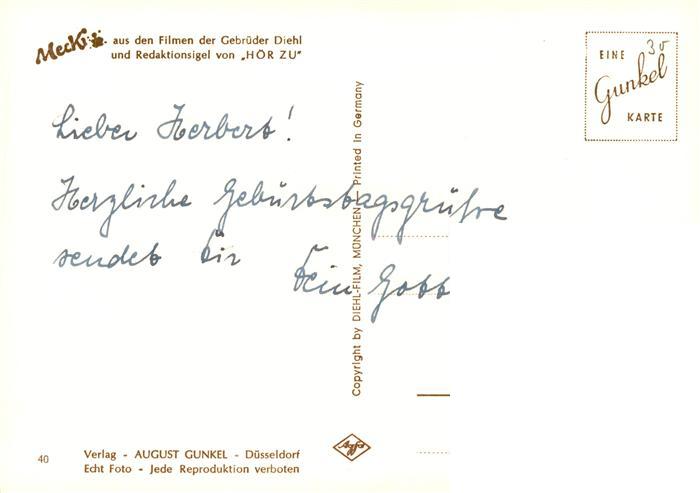 Mecki aus den Filmen der Gebrüder Diehl
und Redaktionsigel von „HÖR ZU"
30
EINE
Gunkel
KARTE
Lieber Herbert!
Herzliche Geburtstagsgrüsse
sendet Dir
Dein Gott
Copyright by DIEHL-FILM, MÜNCHEN — Printed in Germany
40
Verlag - AUGUST GUNKEL - Düsseldorf
Echt Foto - Jede Reproduktion verboten
Agfa